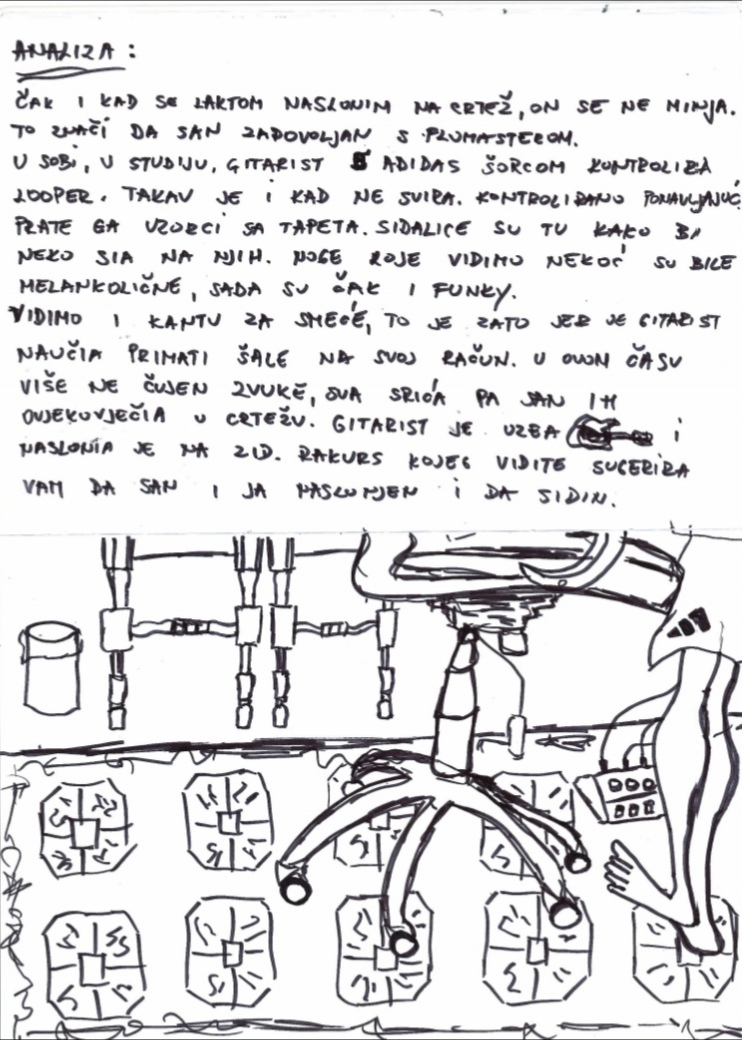 ANALIZA:
ČAK I KAD SE LAKTOM NASLONIM NA CRTEŽ, ON SE NE MINJA.
TO ZNAČI DA SAN ZADOVOLJAN S FLOMASTEROM.
U SOBI, U STUDIJU, GITARIST S ADIDAS ŠORCOM KONTROLIRA
LOOPER. TAKAV JE I KAD NE SVIRA. KONTROLIRANO PONAVLJANUĆ
PRATE GA UZORCI SA TAPETA. SIDALICE SU TU KAKO BI
NEKO SIA NA NJIH. NOGE KOJE VIDIMO NEKOĆ SU BILE
MELANKOLIČNE, SADA SU ČAK I FUNKY.
VIDIMO I KANTU ZA SMEĆE, TO JE ZATO JER JE GITARIST
NAUČIA PRIMATI ŠALE NA SVOJ RAČUN. U OVON ČASU
VIŠE NE ČUJEN ZVUKE, SVA SRIĆA PA SAN IH
OVJEKOVJEČIA U CRTEŽU. GITARIST JE UZEA I
NASLONIA JE NA ZID. RAKURS KOJEG VIDITE SUGERIRA
VAM DA SAN I JA NASLONJEN I DA SIDIN.